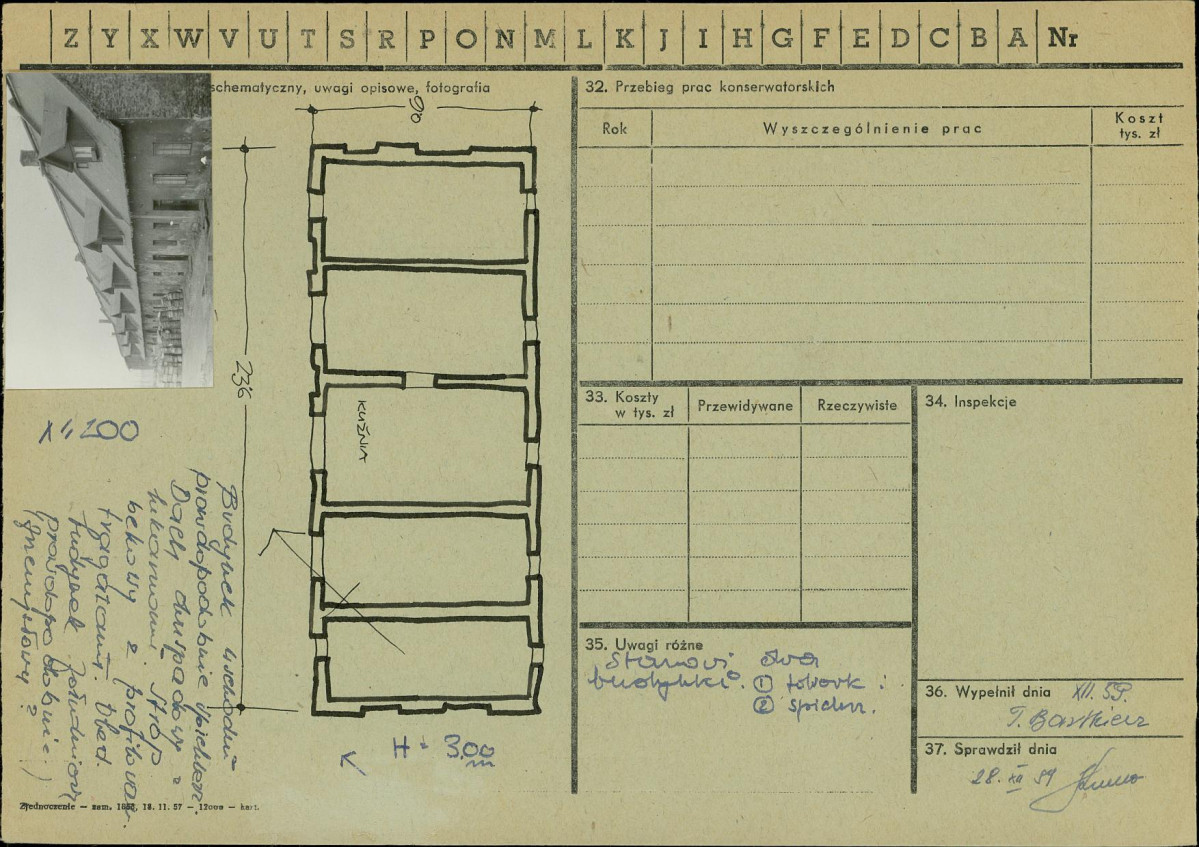 Z Y X W V U T S R P O N M L K J I H G F E D C B A Nr
schematyczny, uwagi opisowe, fotografia
90
236
KUŹNIA
1:200
Budynek wschodni
prawdopodobnie spichlerz.
Dach dwuspadowy z
lukarnami. Strop
belkowy z profilowan.
tragarzami. Obecn.
budynek
prawdopodobnie
przemysłowy ?
H = 3.00 m
Zjednoczenie — zam. 1657, 18. 11. 57 — — kart.
32. Przebieg prac konserwatorskich
Rok
Wyszczególnienie prac
Koszt
tys. zł
33. Koszty
w tys. zł
Przewidywane
Rzeczywiste
34. Inspekcje
35. Uwagi różne
Stanowi dwa
budynki. ① folwark :
② spichrz.
36. Wypełnił dnia XII. 59.
37. Sprawdził dnia
28. XII 59